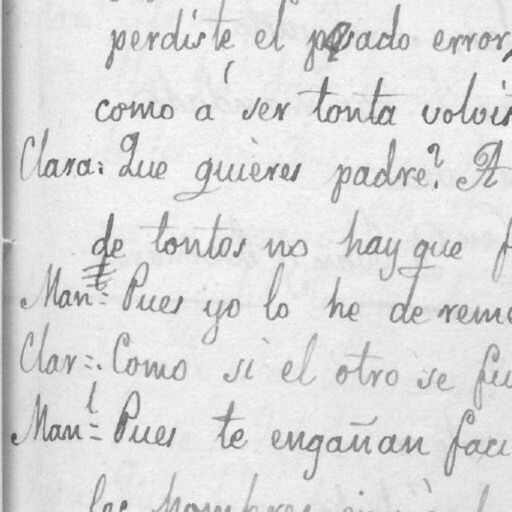 perdiste el pasado error,
como á ser tonta volvis
Clara: Que quieres padre? A
de tontos no hay que f
Man.l = Pues yo lo he de reme
Clar=. Como si el otro se fu
Man.l = Pues te engañan faci
los hombres